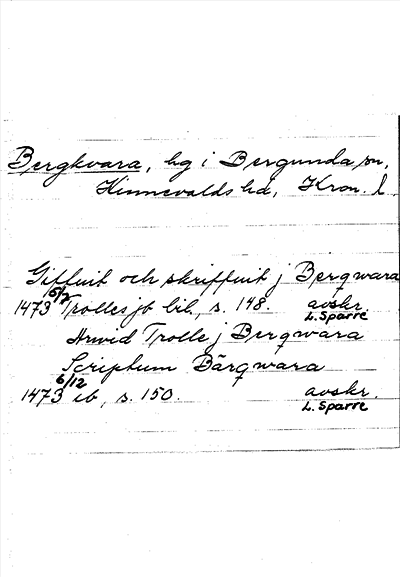 Bergkvara, hg i Bergunda sn,
Kinnevalds hd, Kron. l
Giffuit och skriffuit j Bergwara
1473 5/2 Trolles jb bil., s. 148. avskr. L. Sparre
Arwid Trolle j Bergwara
Scriptum Bärqwara
1473 6/12 ib., s. 150. avskr. L. Sparre